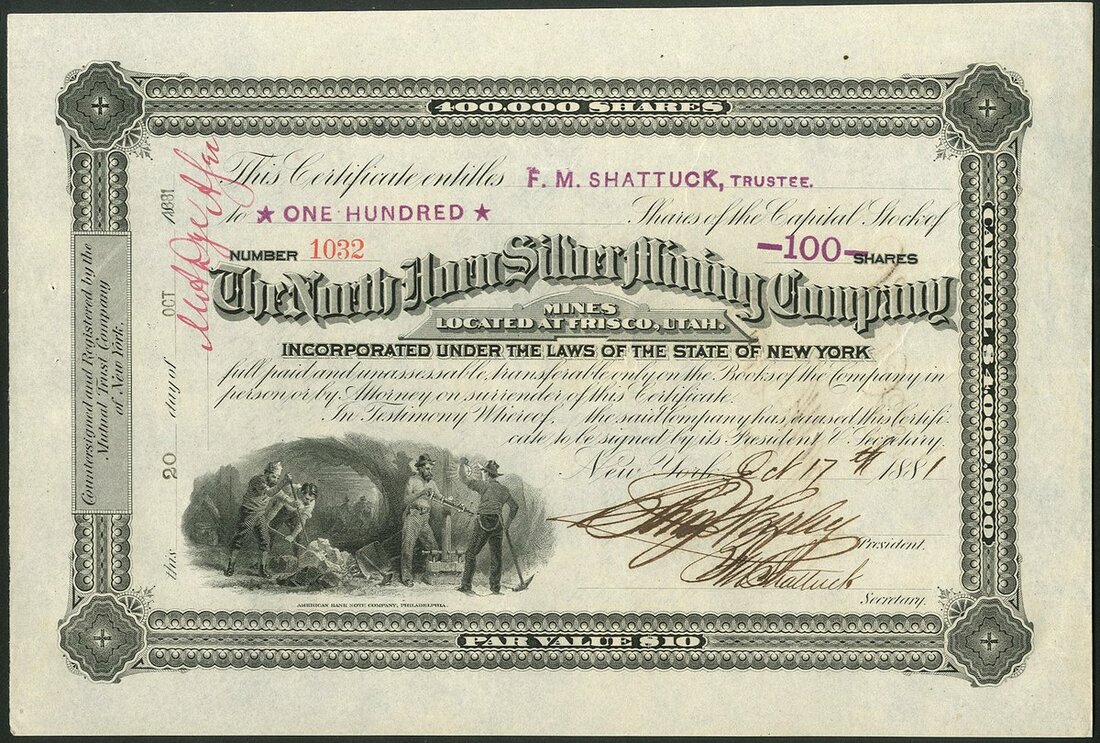 400.000 SHARES
This Certificate entitles F. M. SHATTUCK, TRUSTEE.
to ★ ONE HUNDRED ★ Shares of the Capital Stock of
NUMBER 1032 —100— SHARES
The North Horn Silver Mining Company
MINES
LOCATED AT FRISCO, UTAH.
INCORPORATED UNDER THE LAWS OF THE STATE OF NEW YORK
full paid and unassessable, transferable only on the Books of the Company in
person or by Attorney on surrender of this Certificate.
In Testimony Whereof, the said Company has caused this Certifi-
cate to be signed by its President & Secretary.
New York Oct 17th 1881
President.
Shattuck
Secretary.
AMERICAN BANK NOTE COMPANY, PHILADELPHIA.
PAR VALUE $10
Countersigned and Registered by the
Mutual Trust Company
of New York.
this 20 day of OCT 1881
CAPITAL $4.000.000